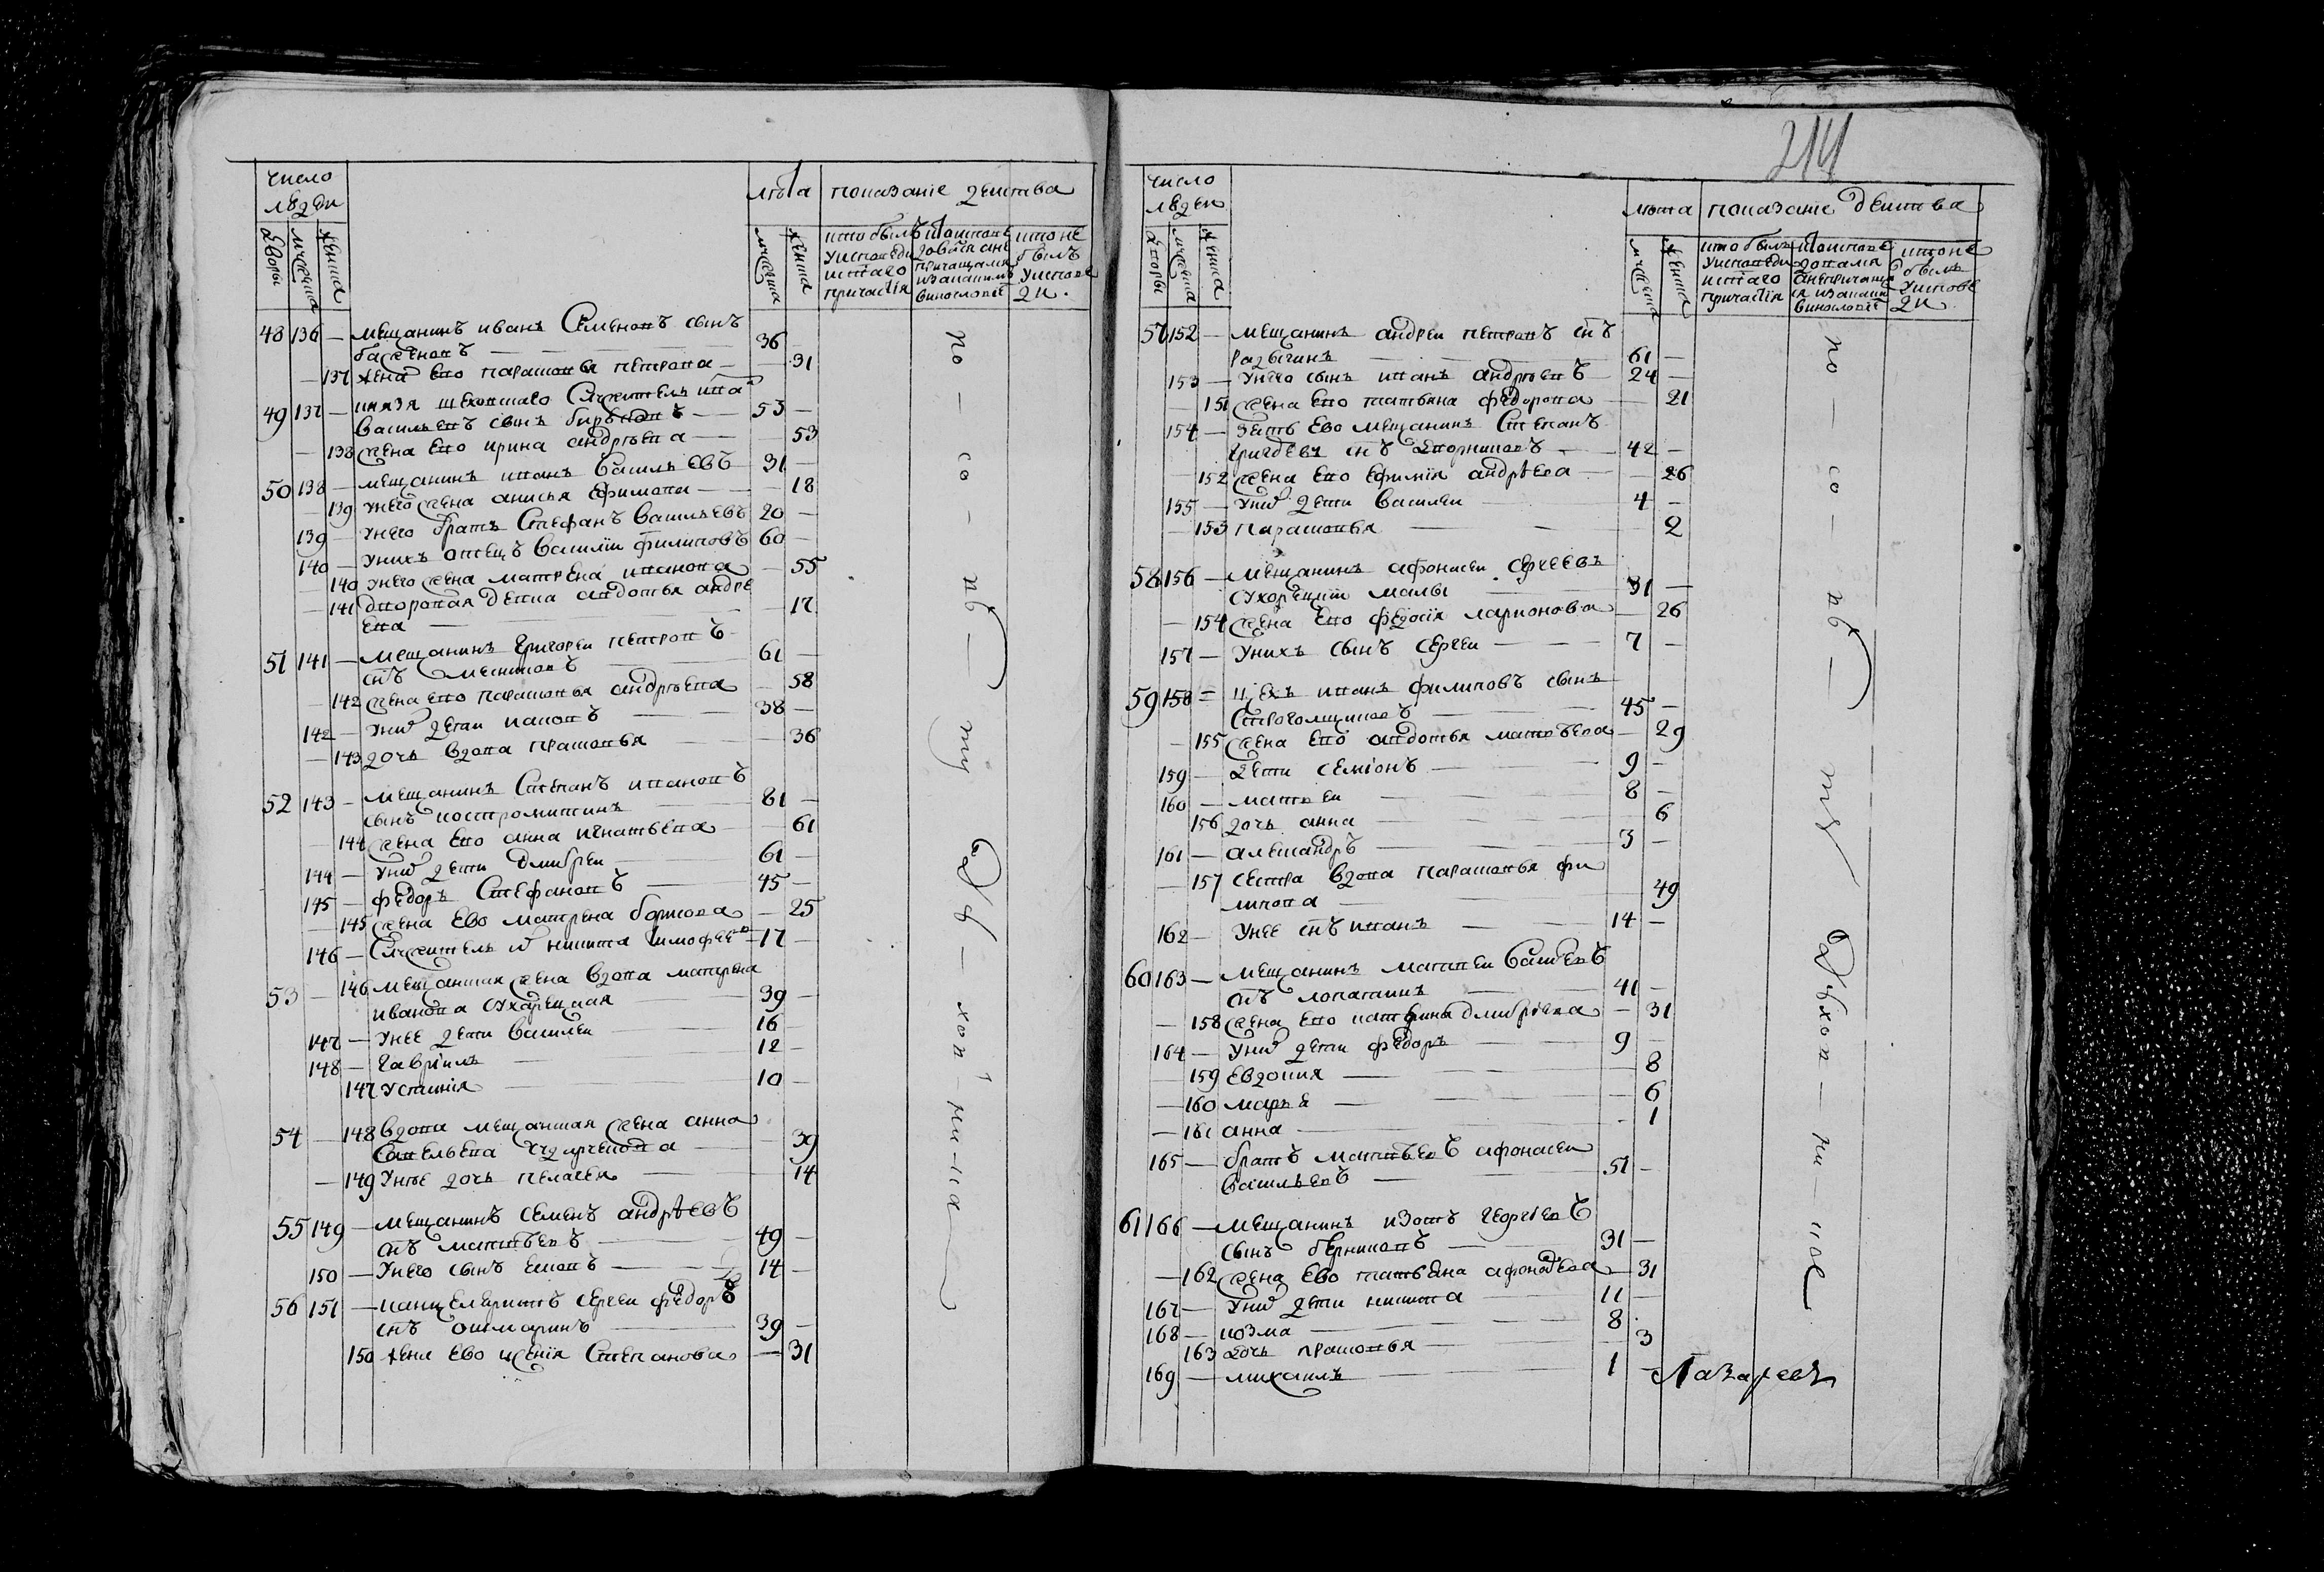 число
людеи
лѣта
показание действа
дворы
мужеска
женска
мужеска
женска
кто былъ
у исповеди
и стаго
причастия
кто исповѣ
довался а не
причащался
и за каким
винословие
кто не
былъ
у испове
ди
48 136 — мещанинъ иванъ Семеновъ сынъ
36
— 137 жена ево парасковья петрова — 31
49 137 — князя шеховскаго Служитель ива
Васильевъ сынъ 53 —
— 138 жена ево ирина андрѣева — 53
50 138 — мещанинъ иванъ Васильевъ 31 —
— 139 унего жена анисья ефимова — 18
139 — унего братъ Стефанъ Васильевъ 20 —
140 — унихъ отецъ Василии филиповъ 60 —
— 140 унего жена матрена иванова — 55
— 141 дворовая девка авдотья андре
ева — 17
51 141 — мещанинъ григореи петровъ
снъ 61 —
— 142 жена ево парасковья андрѣева — 58
142 — унихъ дети 38 —
— 143 дочь вдова прасковья — 36
52 143 — мещанинъ Степанъ ивановъ
сынъ костромитинъ 81 —
— 144 жена ево анна игнатьева — 61
144 — унихъ дети дмитреи 61 —
145 — федоръ Стефановъ 45 —
— 145 жена ево матрена борисова — 25
146 — Служитель их никита тимофеев 17 —
53 — 146 мещанская жена вдова матрена
иванова сухарецкая 39 —
147 — унее дети Василеи 16
148 — гаврiилъ 12 —
147 устиния 10 —
54 — 148 вдова мещанская жена анна
Савельева 39
— 149 унее дочь пелагея 14
55 149 — мещанинъ семенъ андрѣевъ
снъ матвѣевъ 49 —
150 — унего сынъ 14 —
56 151 — канцеляристъ сергеи федоръ
снъ 39 —
150 жена ево ксения Степанова — 31
по — со — пѣ — ту — хов — ни — ка
214
число
людеи
лѣта
показание действа
дворы
мужеска
женска
мужеска
женска
кто былъ
у исповеди
и стаго
причастия
кто испове
довался
а не причаща
ся и за каким
винословие
кто не
былъ
у испове
ди
57 152 — мещанинъ андреи петровъ снъ
61 —
153 — унего сынъ иванъ андрѣевъ 24 —
— 151 жена ево татьяна федорова — 21
154 — зять ево мещанинъ Степанъ
снъ дворниковъ 42 —
— 152 жена ево ефимия андрѣева — 26
155 — унихъ дети Василеи 4 —
— 153 парасковья — 2
58 156 — мещанинъ афонасеи сергеевъ
сухорецкии малы 31 —
— 154 жена ево федосия ларионова — 26
157 — унихъ сынъ сергеи 7 —
59 158 — цехъ иванъ филиповъ сынъ
45 —
— 155 жена ево авдотья матвѣева — 29
159 — дети семионъ 9 —
160 — матвеи 8 —
156 дочь анна 6
161 — александръ 3 —
— 157 сестра вдова парасковья фи
липова 49
162 — унее снъ иванъ 14 —
60 163 — мещанинъ матвеи Василевъ
снъ лопатинъ 41 —
— 158 жена ево катерина дмитриева — 31
164 — унихъ дети федоръ 9 —
— 159 евдокия — 8
— 160 марья — 6
— 161 анна — 1
165 — братъ матвѣевъ афонасеи
васильевъ 51 —
61 166 — мещанинъ изотъ георгиевъ
сынъ 31 —
— 162 жена ево татьяна афонасева — 31
167 — унихъ дети никита 11 —
168 — козма 8
163 дочь прасковья — 3
169 — михаилъ 1 —
по — со — пѣ — ту — хов — ни — кое
Лазаревъ